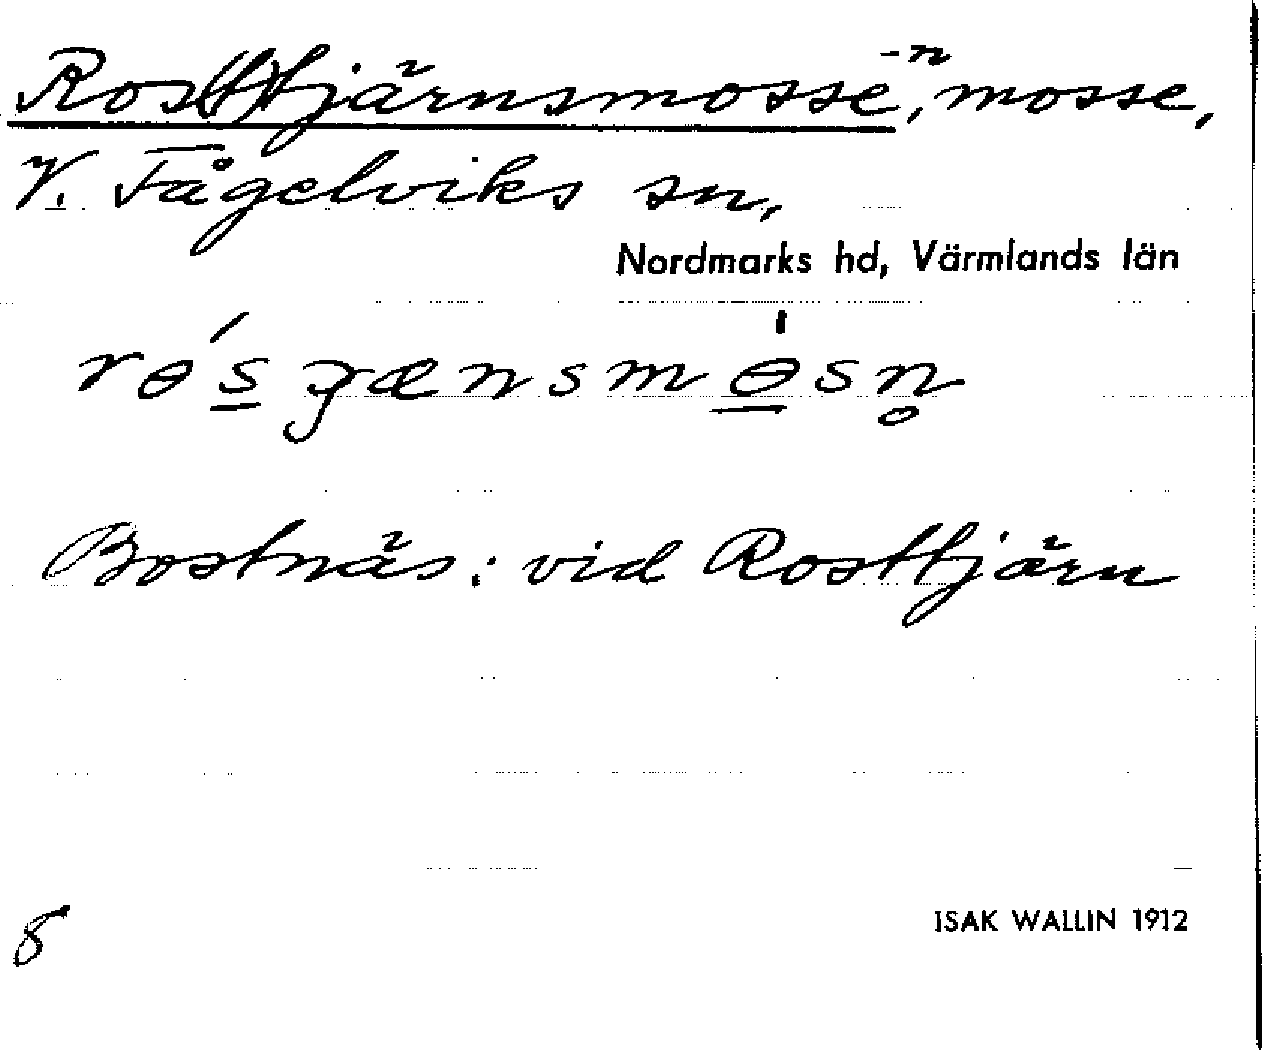 Ros(t)tjärnsmosse -n, mosse,
V. Fågelviks sn,
Nordmarks hd, Värmlands län
Bostnäs: vid Rosttjärn
8
ISAK WALLIN 1912